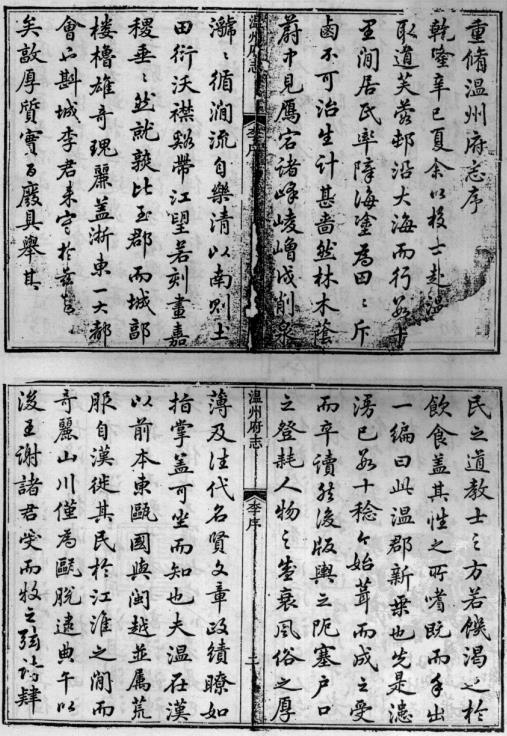 重脩温州府志序
乾隆辛巳夏余以校士赴温
取道芙蓉邨沿大海而行數十
里間居民率障海塗為田〻斥
鹵不可治生計甚嗇然林木蔭
蔚中見鴈宕諸峰崚嶒戌削泉
温州府志
李序
㶁〻循澗流自樂清以南則土
田衍沃襟谿帶江望若刻畫嘉
稷垂〻然就蓺比至郡而城郭
樓櫓雄奇瑰麗蓋浙東一大都
會也斟城李君来守於茲
矣敦厚質實百廢具舉其
民之道教士之方若饑渴之於
飲食蓋其性之所嗜既而手出
一編曰此温郡新乗也先是漶
漫已數十稔今始葺而成之受
而卒讀然後版輿之阨塞户口
之登耗人物之盛衰風俗之厚
温州府志
李序
二
薄及往代名賢文章政績瞭如
指掌蓋可坐而知也夫温在漢
以前本東甌國與閩越並屬荒
服自漢徙其民於江淮之間而
奇麗山川僅為甌脱逮典午以
後王謝諸君出而牧之弦誦肄